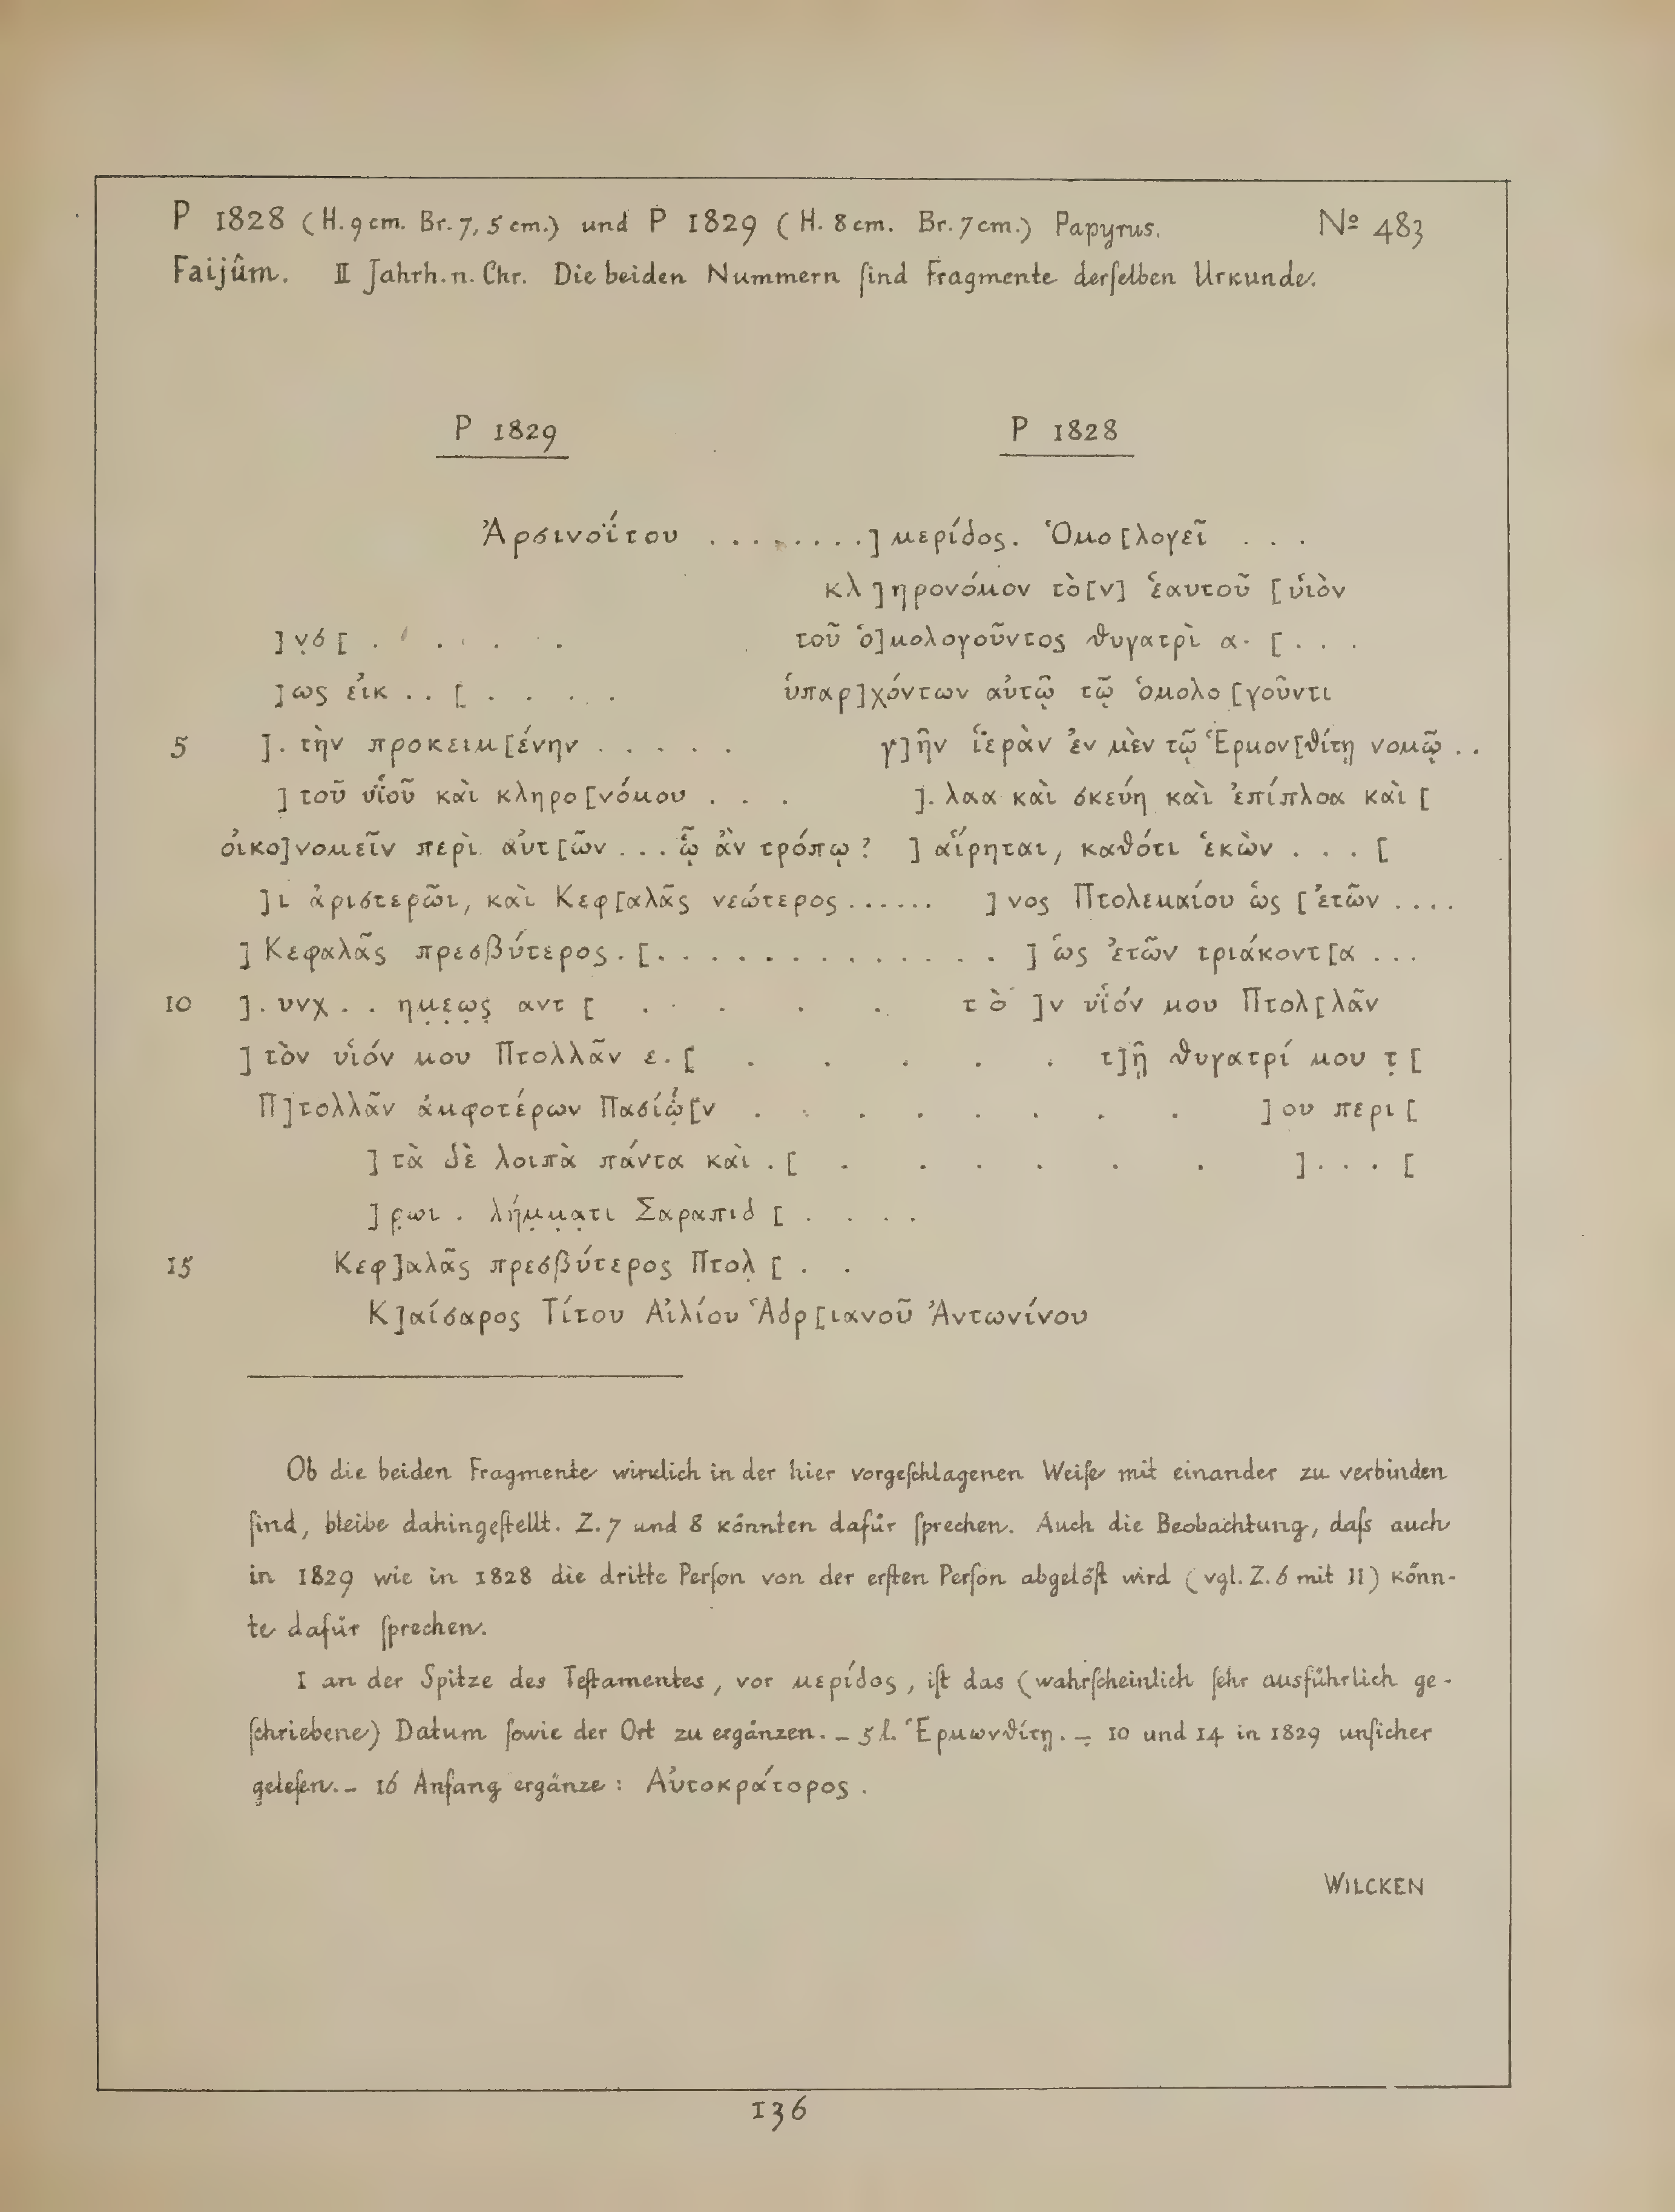 P 1828 (H. 9 cm. Br. 7,5 cm.) und P 1829 (H. 8 cm. Br. 7 cm.) Papyrus. Nº 483
Faijûm. II Jahrh. n. Chr. Die beiden Nummern ſind Fragmente derſelben Urkunde.
P 1829 P 1828
Ἀρσινοΐτου . . . . . . . .] μερίδος. Ὁμο[λογεῖ . . .
κλ]ηρονόμον τὸ[ν] ἑαυτοῦ [υἱὸν
]ν̣σ[ . . . . . τοῦ ὁ]μολογοῦντος θυγατρὶ α· [. . .
]ως εἰκ . . [ . . . . ὑπαρ]χόντων αὐτῷ τῷ ὁμολο[γοῦντι
5 ]. τὴν προκειμ[ένην . . . . . γ]ῆν ἱ̈ερὰν ἐν μὲν τῷ Ἑρμον[θίτῃ νομῷ . .
] τοῦ υἱ̈οῦ καὶ κληρο[νόμου . . . ]. λαα καὶ σκεύη καὶ ἐπίπλοα καὶ [
οἰκο]νομεῖν περὶ αὐτ[ῶν . . . ᾧ ἂν τρόπῳ ? ] αἵρηται, καθότι ἑκὼν . . . [
]ι ἀριστερῶι, καὶ Κεφ[αλᾶς νεώτερος . . . . . . ]νος Πτολεμαίου ὡς [ἐτῶν . . . .
] Κεφαλᾶς πρεσβύτερος . [. . . . . . . . . . . . . ] ὡς ἐτῶν τριάκοντ[α . . .
10 ]. υνχ . . ημ̣ε̣ω̣ς̣ αντ [ . . . . τὸ ]ν υἱ̈όν μου Πτολ[λᾶν
] τὸν υἱόν μου Πτολλᾶν ε . [ . . . . . τ]ῇ θυγατρί μου τ̣ [
Π]τολλᾶν ἀμφοτέρων Πασίῳ̣[ν . . . . . . . . ]ου περι [
] τὰ δὲ λοιπὰ πάντα καὶ . [ . . . . . . ]. . . [
]ρ̣ωι . λήμ̣μ̣α̣τι Σαραπιδ [ . . . .
15 Κεφ]αλᾶς πρεσβύτερος Πτολ̣ [ . .
Κ]αίσαρος Τίτου Αἰλίου Ἁδρ[ιανοῦ Ἀντωνίνου
Ob die beiden Fragmente wirklich in der hier vorgeſchlagenen Weiſe mit einander zu verbinden
ſind, bleibe dahingeſtellt. Z. 7 und 8 könnten dafür ſprechen. Auch die Beobachtung, daſs auch
in 1829 wie in 1828 die dritte Perſon von der erſten Perſon abgelöſt wird (vgl. Z. 6 mit 11) könn-
te dafür ſprechen.
1 an der Spitze des Teſtamentes, vor μερίδος, iſt das (wahrſcheinlich ſehr ausführlich ge-
ſchriebene) Datum ſowie der Ort zu ergänzen. – 5 l. Ἑρμωνθίτῃ. – 10 und 14 in 1829 unſicher
geleſen. – 16 Anfang ergänze: Αὐτοκράτορος.
WILCKEN
136